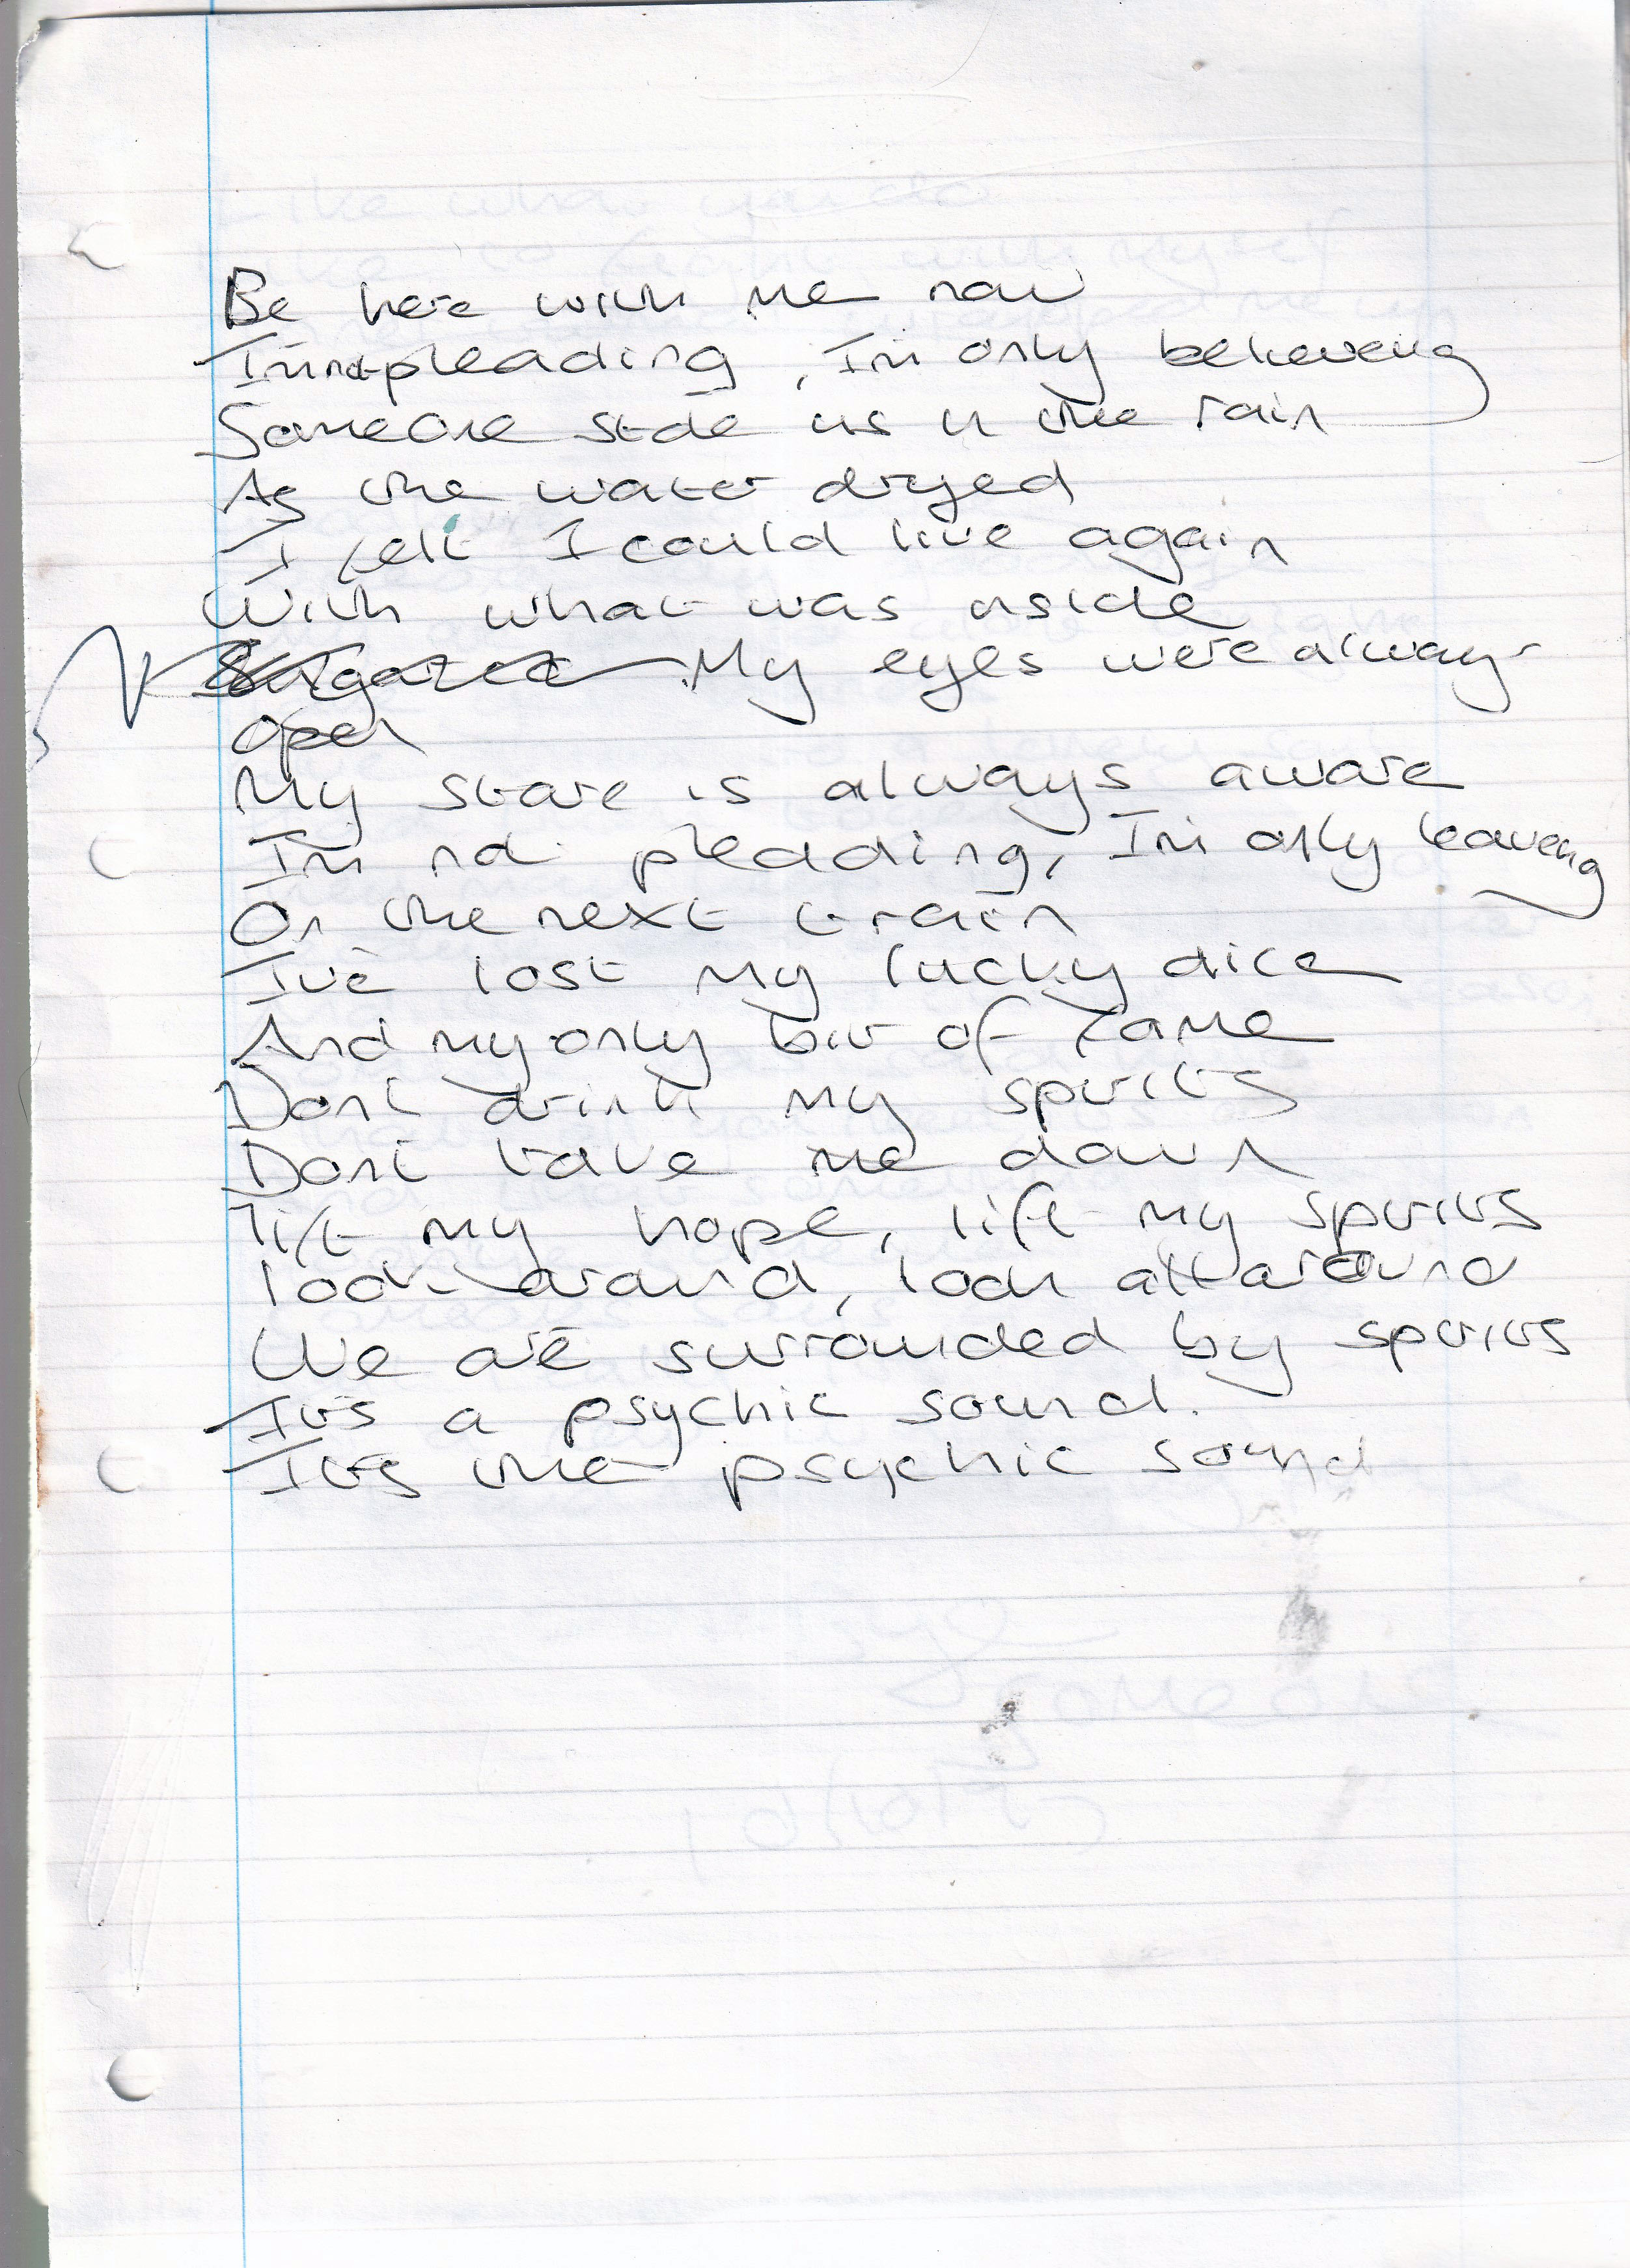 Be here with me now
I'm not pleading, I'm only believeing
Someone stole us in the rain
As the water dryed
I felt I could live again
With what was inside
My eyes were always
open
My stare is always aware
I'm not pleading, I'm only leaveing
On the next train
I've lost my lucky dice
And my only bit of fame
Dont drink my spirits
Dont take me down
lift my hope, lift my spirits
look around, look all around
We are surrounded by spirits
Its a psychic sound.
Its the psychic sound